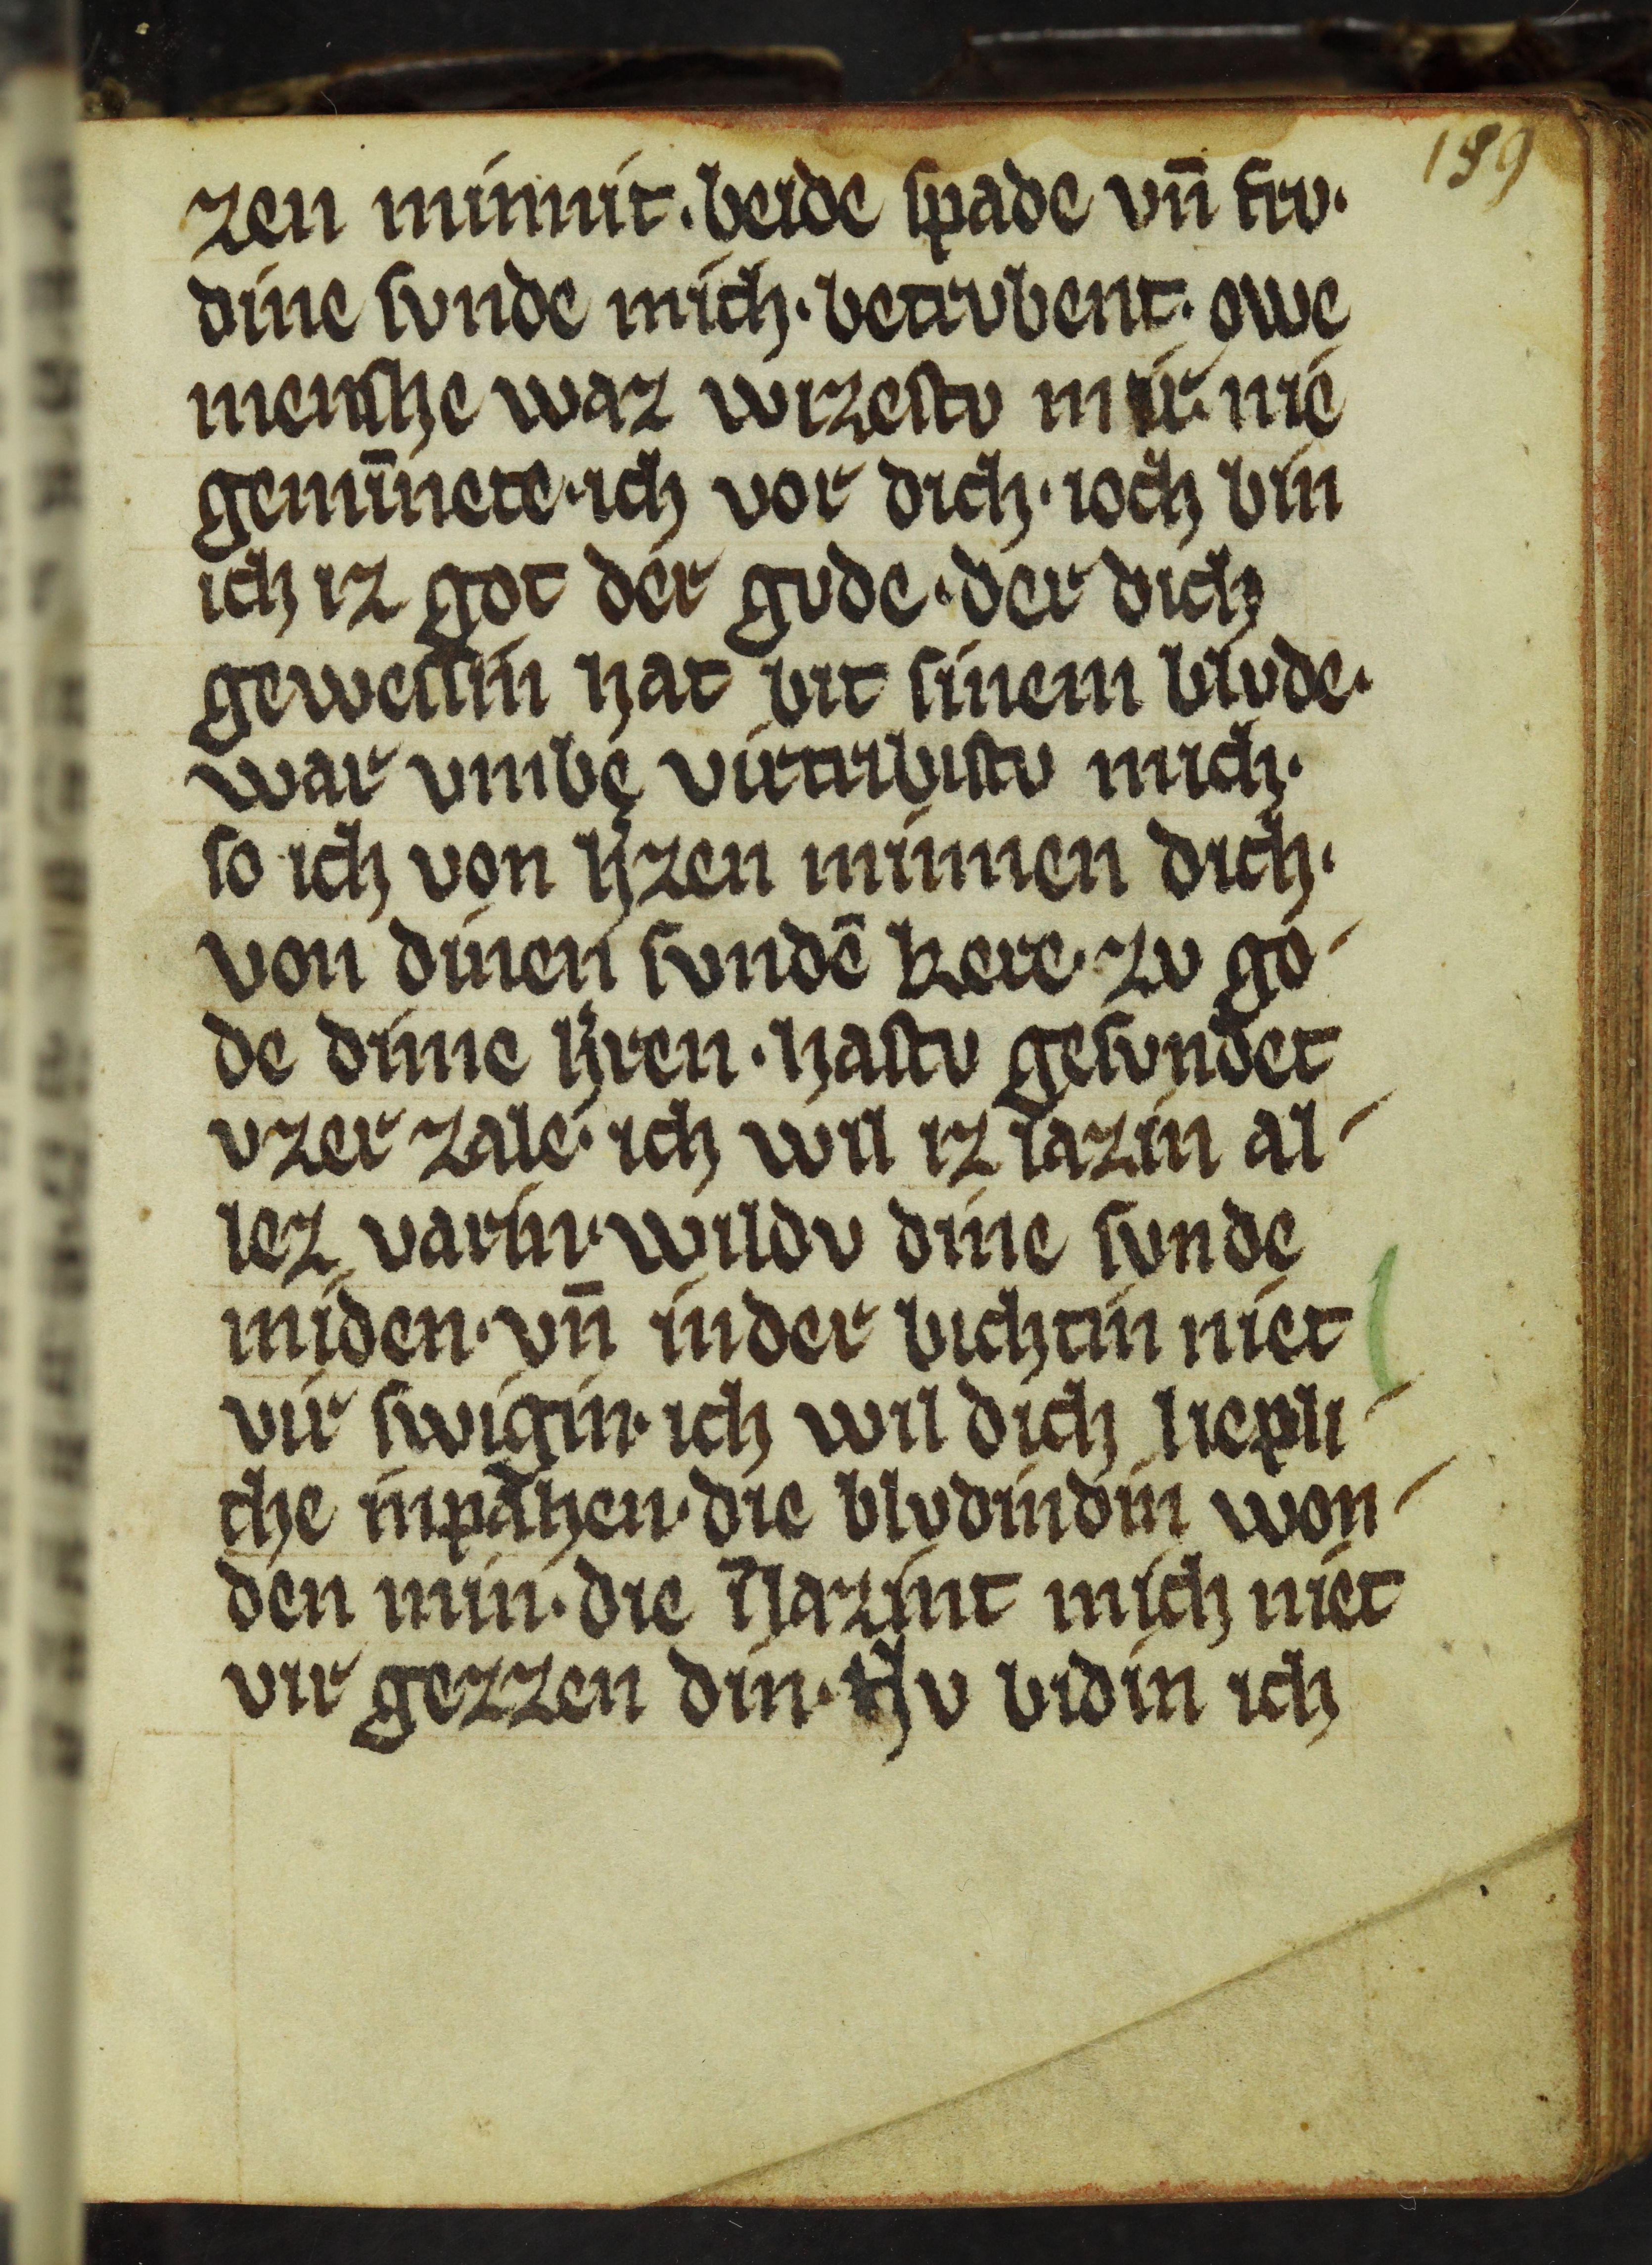 189
zen minnit. beide spade vn̄ fru.
dine sunde mich. betrubent. owe
mensche waz wizestu mir. nie
gemīnete. ich vor dich. ioch bin
ich iz got der gude. der dich
gewessin hat bit sinem blude.
war vmbe virtribistu mich.
so ich von h̓zen minnen dich.
von dinen sundē kere. zu go-
de dime h̓ren. hastu gesundet
vzer zale. ich wil iz lazin al-
lez varin. wildu dine sunde
miden. vn̄ inder bichtin niet
vir swigin. ich wil dich liepli-
che inpahen. die bludindin won-
den min. die nlazint mich niet
vir gezzen din. Nu bidin ich